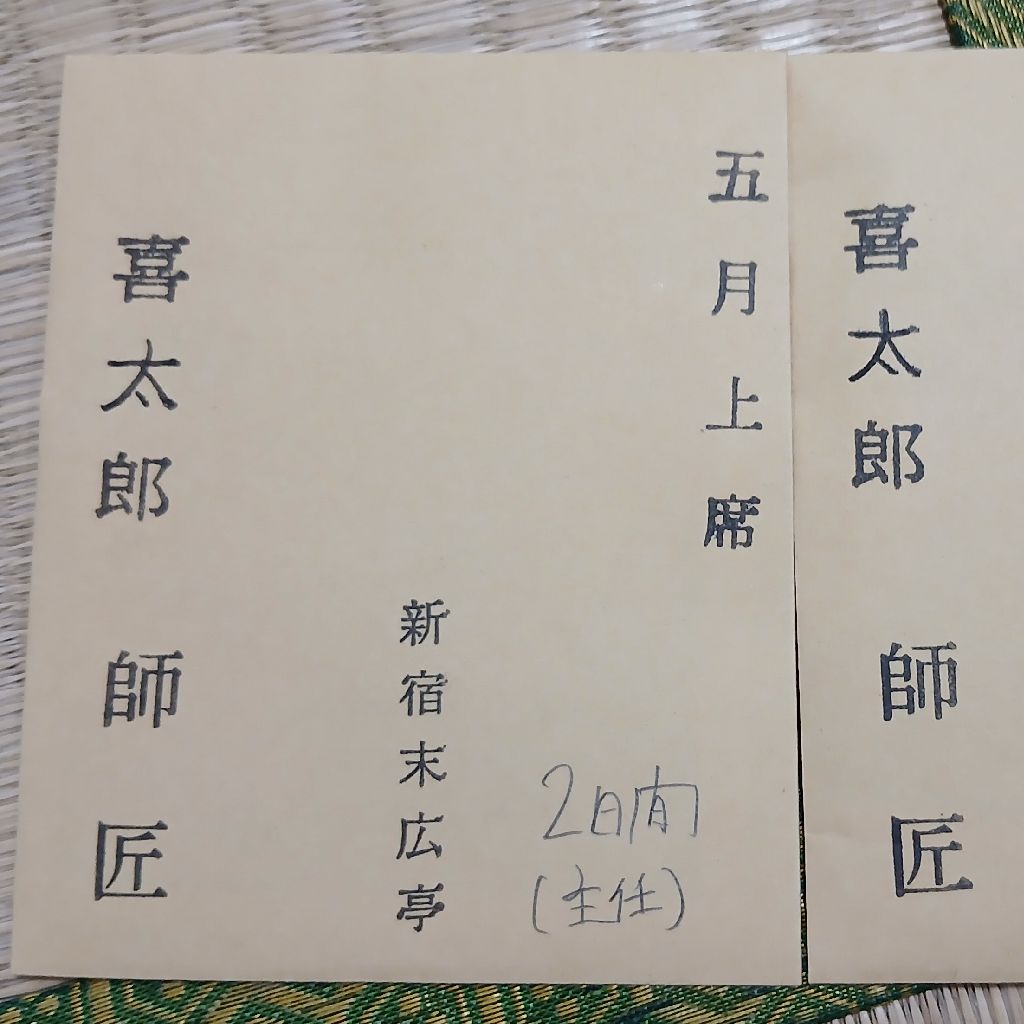 喜太郎 師匠
五月上席
2日間
(主任)
新宿末広亭
喜太郎 師匠